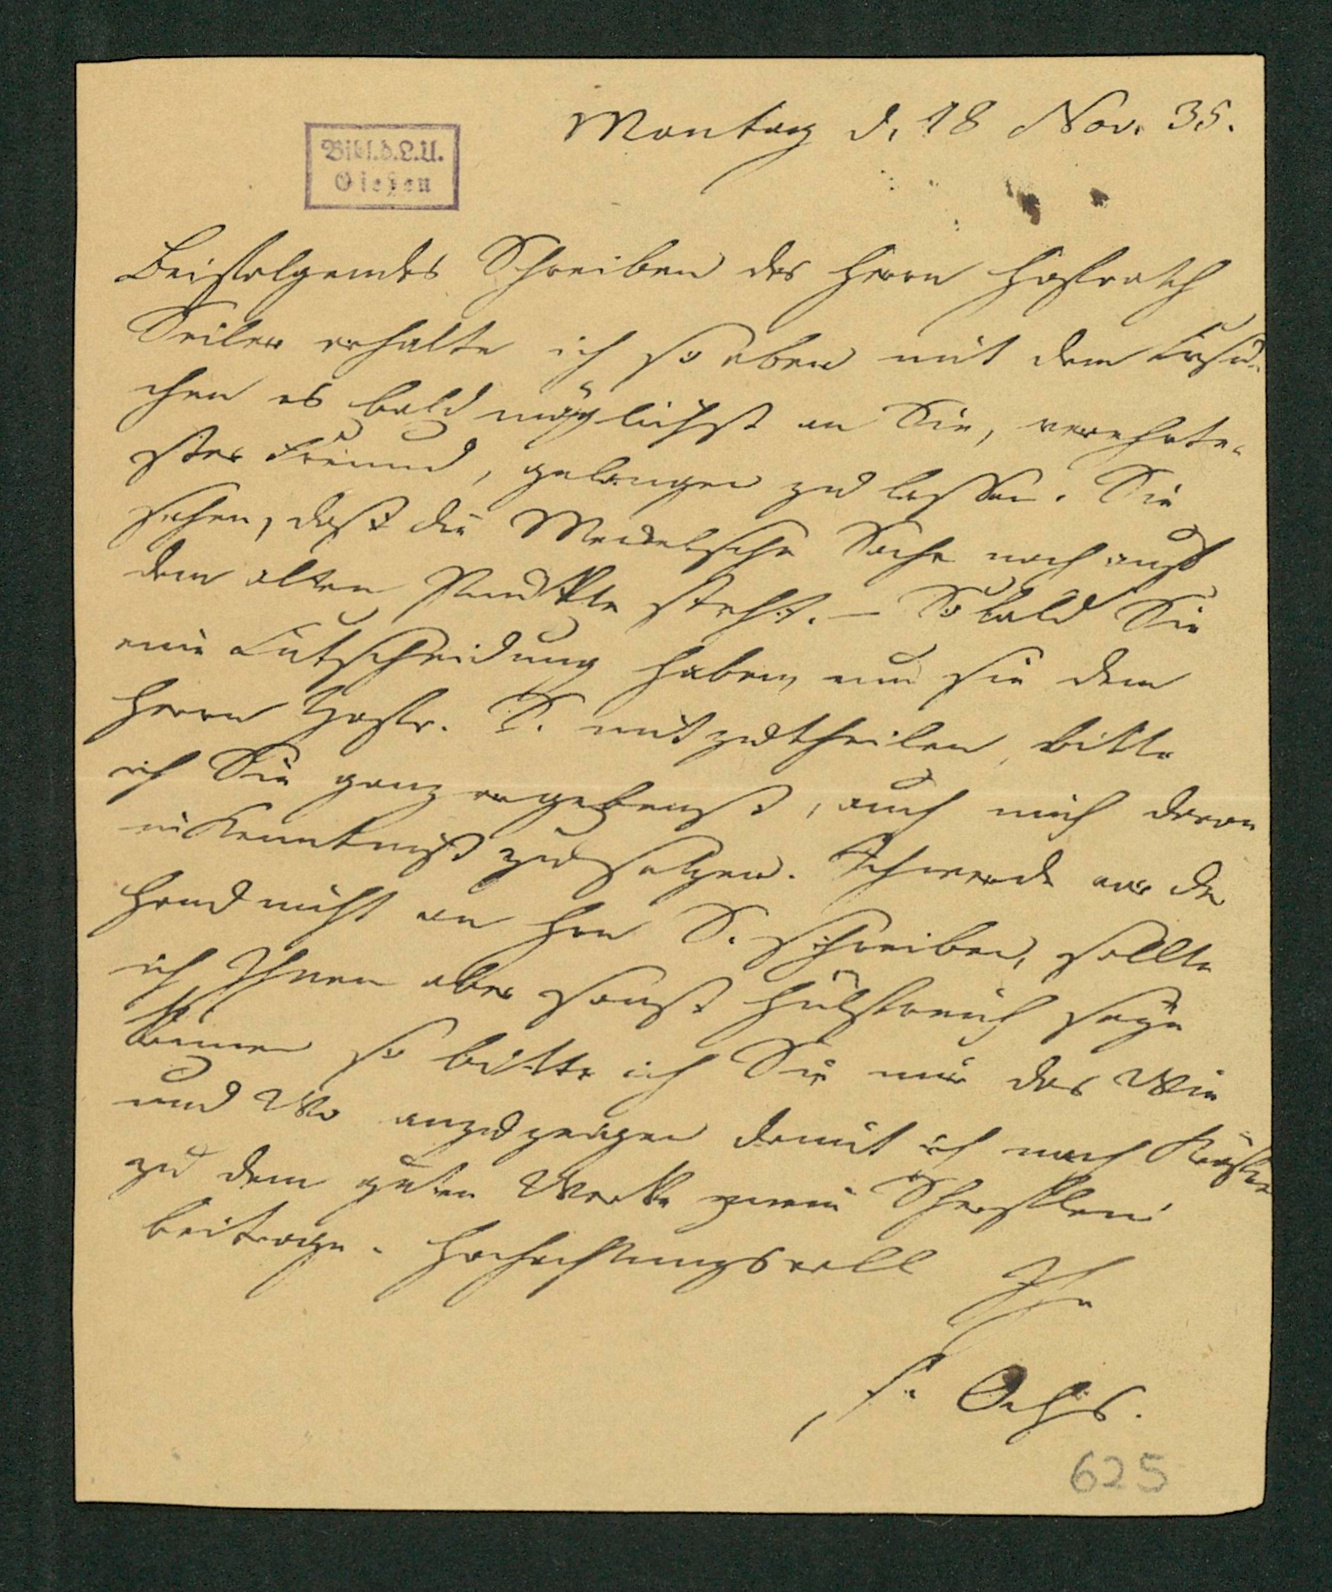 Montag d. 18 Nov. 35.
Bibl. d. L. U.
Gießen
Beifolgendes Schreiben des Herrn Hofrath
Seiler erhalte ich so eben mit dem Ersu-
chen es bald möglichst an Sie, verehrte-
ster Freund, gelangen zu lassen. Sie
sehen, daß die Meckelsche Sache noch auf
dem alten Punkte steht. – So bald Sie
eine Entscheidung haben, um sie dem
Herrn Hofr. S. mitzutheilen, bitte
ich Sie ganz ergebenst, auch mich davon
in Kenntniß zu setzen. Ich werde vor der
Hand nicht an Hrn S. schreiben, sollte
ich Ihnen aber sonst hülfreich seyn
können so bitte ich Sie mir das Wie
und Wo anzuzeigen damit ich nach Kräften
zu dem guten Werke mein Scherflein
beitrage. Hochachtungsvoll
Ihr
Ochs.
625